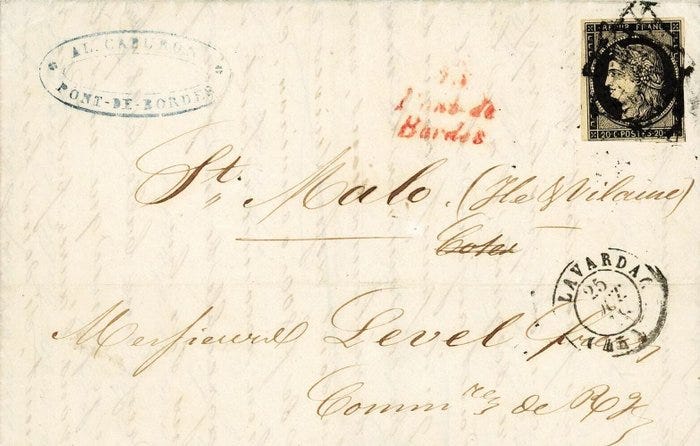 PONT-DE-BORDES
Pont-de
Bordes
REPUB. FRANC
20 C POSTES 20
St. Malo (Ile & Vilaine)
LAVARDAC
25
Messieurs Level
Comm.res de